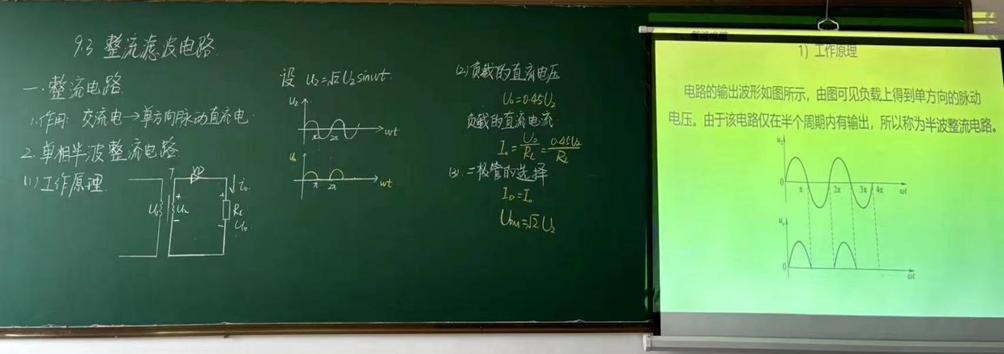 9.3 整流滤波电路
一.整流电路
1.作用: 交流电→单方向脉动直流电
2.单相半波整流电路
(1)工作原理
T
VD
i₀
R_L
U₀
设 u₂=√2U₂sinωt
u₂
π 2π ωt
u₀
π 2π ωt
(2)负载的直流电压
U₀=0.45U₂
负载的直流电流
I₀=U₀/R_L=0.45U₂/R_L
(3)二极管的选择
I_D=I₀
U_RM=√2U₂
1) 工作原理
电路的输出波形如图所示，由图可见负载上得到单方向的脉动
电压。由于该电路仅在半个周期内有输出，所以称为半波整流电路。
0 π 2π 3π 4π ωt
0 ωt